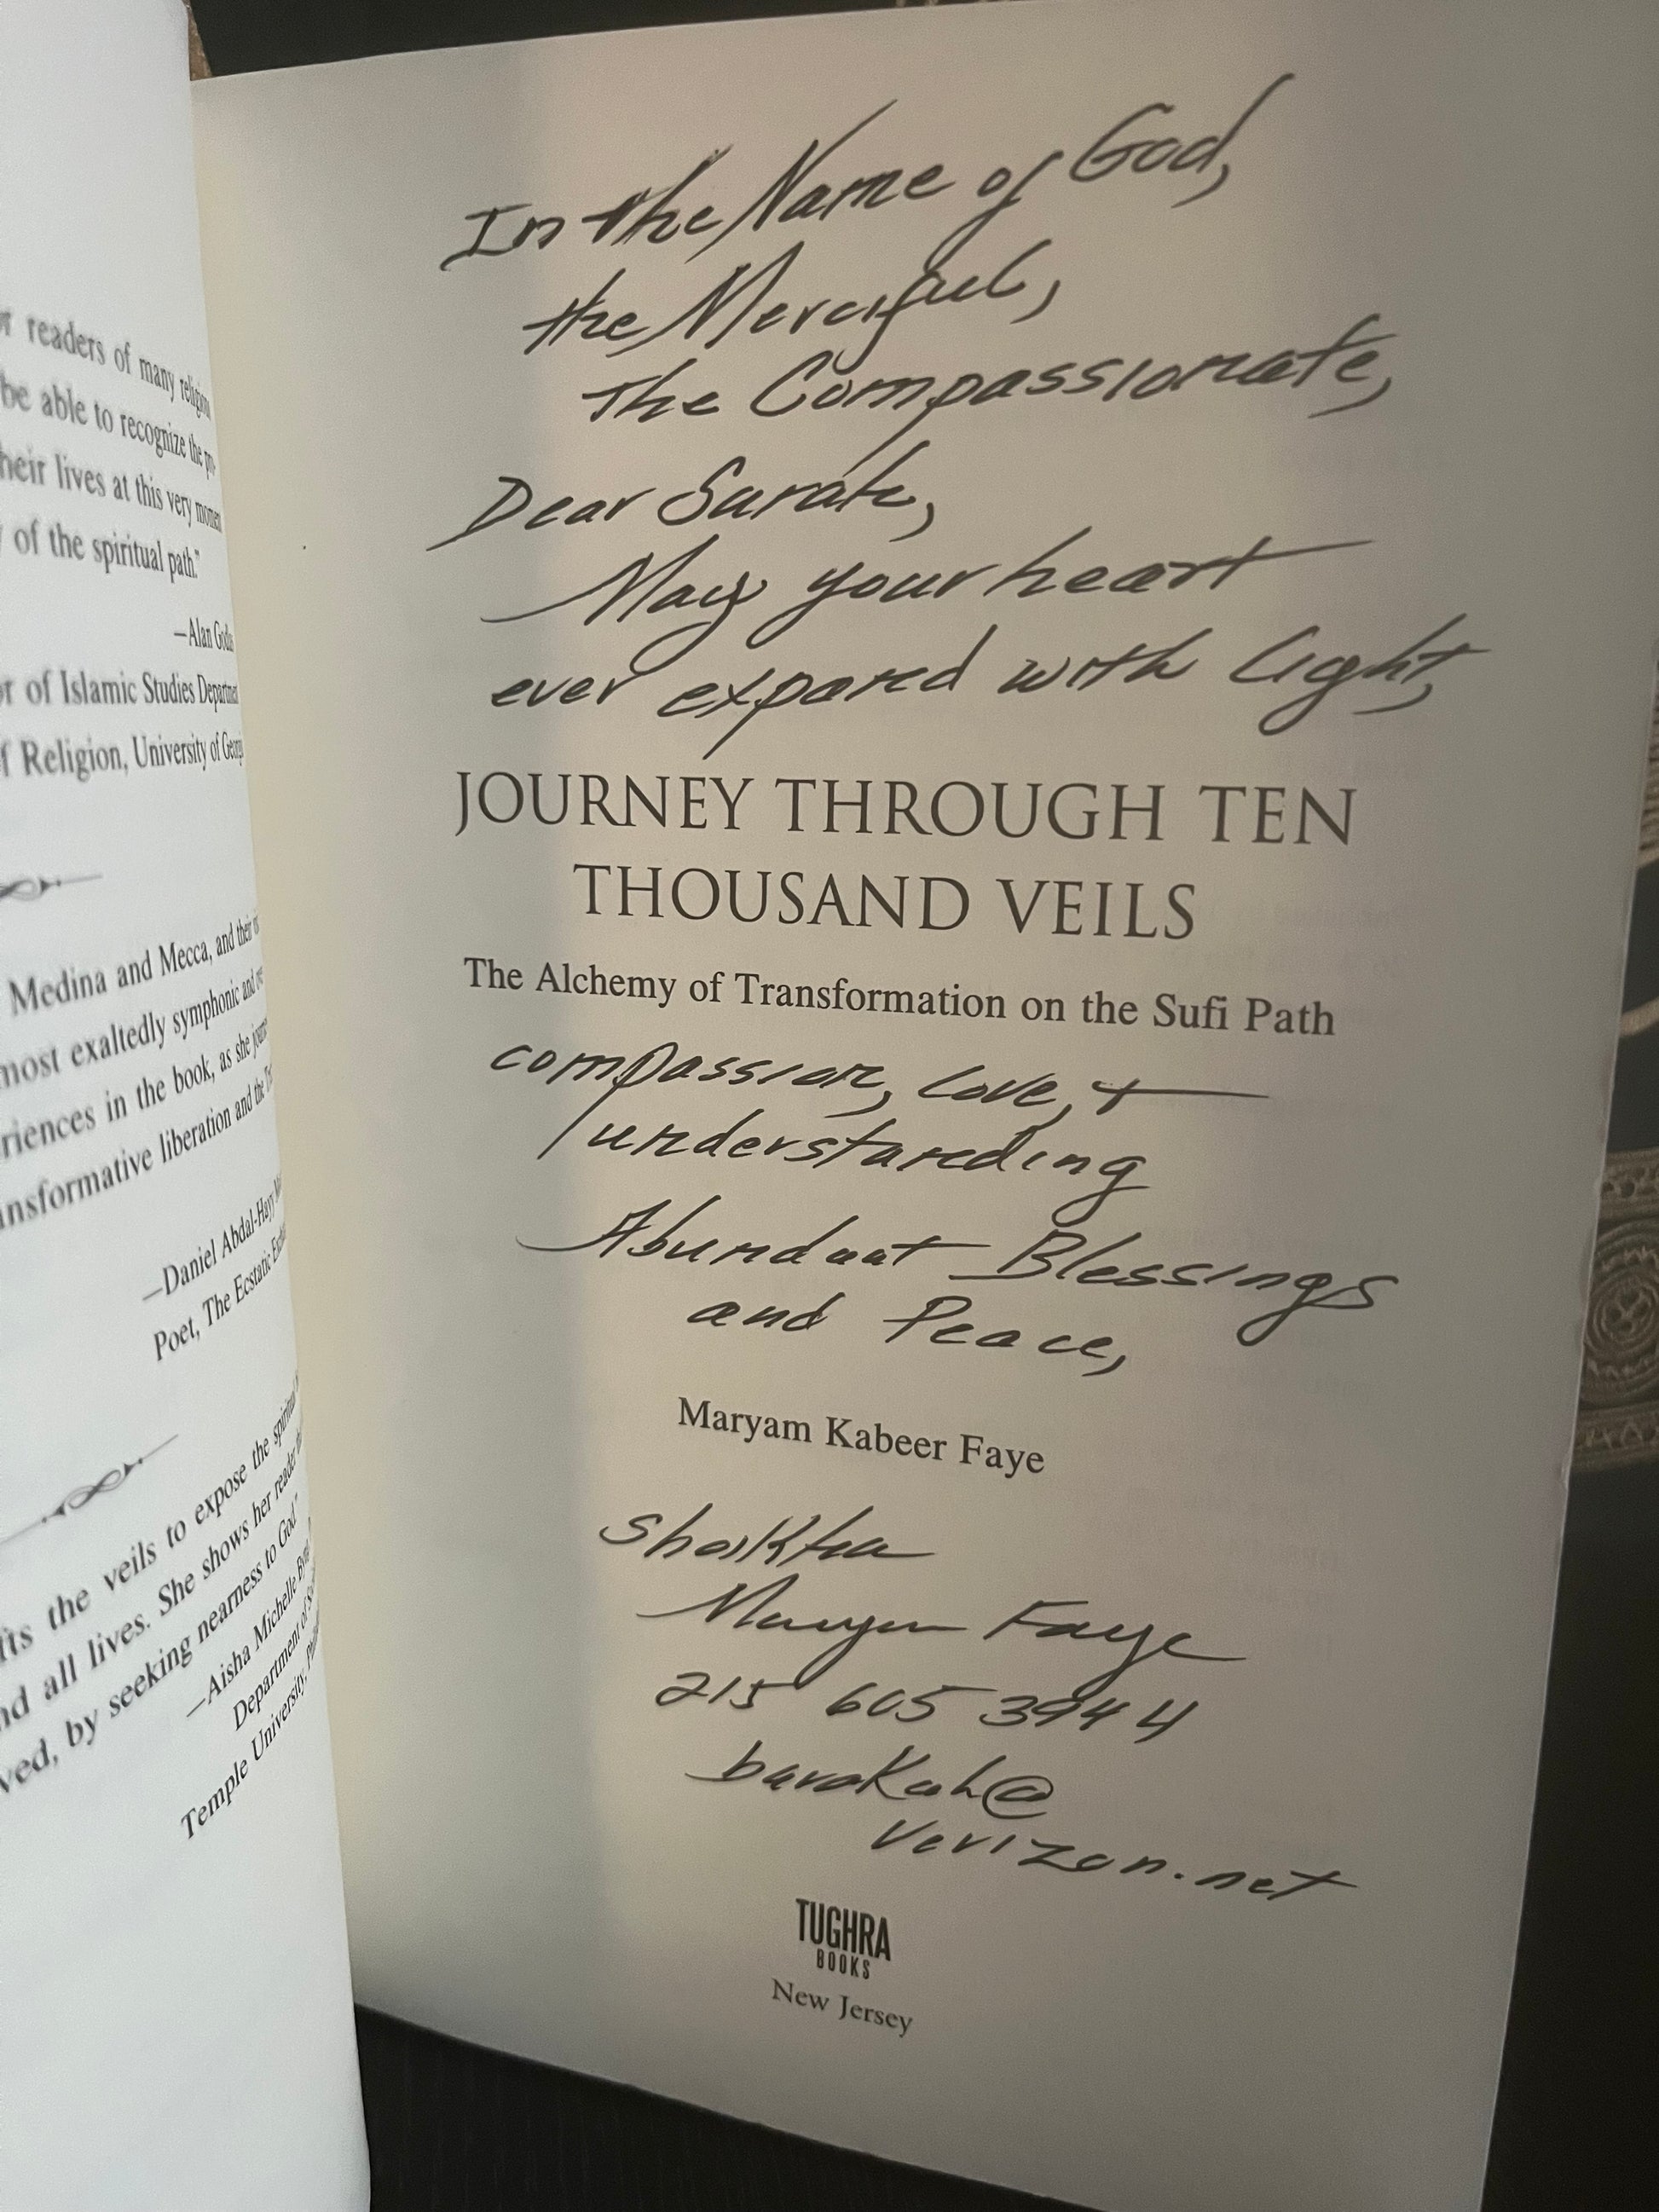 r readers of many
be able to recognize the
heir lives at this very
of the spiritual path."
—Alan
r of Islamic Studies
f Religion, University of
Medina and Mecca, and their
most exaltedly symphonic and
riences in the book, as she
ansformative liberation and the
—Daniel Abdal-Hayy
Poet, The Ecstatic
fts the veils to expose the
nd all lives. She shows her reader
ved, by seeking nearness to God."
—Aisha Michelle
Department of
Temple University,
In the Name of God,
the Merciful,
The Compassionate,
Dear Sarah,
May your heart
ever expand with light,
JOURNEY THROUGH TEN
THOUSAND VEILS
The Alchemy of Transformation on the Sufi Path
compassion, love, +
understanding
Abundant Blessings
and Peace,
Maryam Kabeer Faye
Shaikha
Maryam Faye
215 605 3944
barakah@
verizon.net
TUGHRA
BOOKS
New Jersey